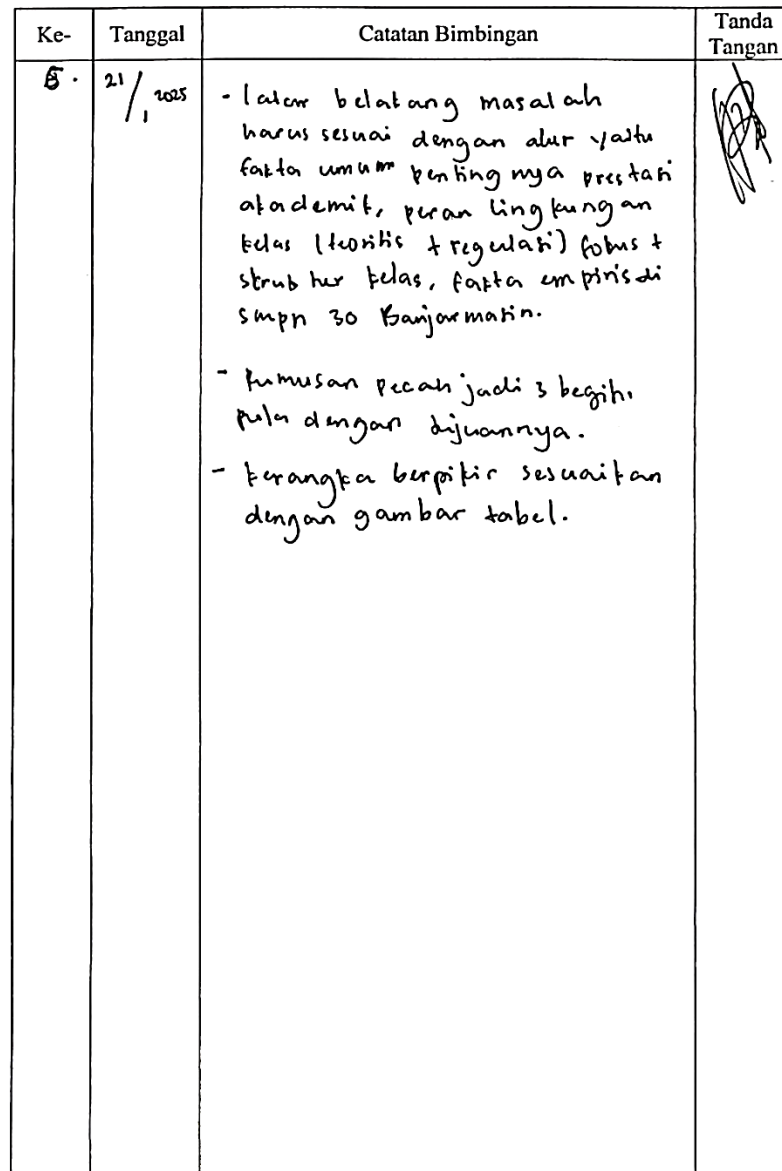 Ke-
Tanggal
Catatan Bimbingan
Tanda
Tangan
5.
21/1 2025
- latar belakang masalah
harus sesuai dengan alur yaitu
fakta umum pentingnya prestasi
akademik, peran lingkungan
kelas (teoritis + regulasi) fokus +
struktur kelas, fakta empiris di
smpn 30 Banjarmasin.
- Rumusan pecah jadi 3 begitu
pula dengan tujuannya.
- kerangka berpikir sesuaikan
dengan gambar tabel.